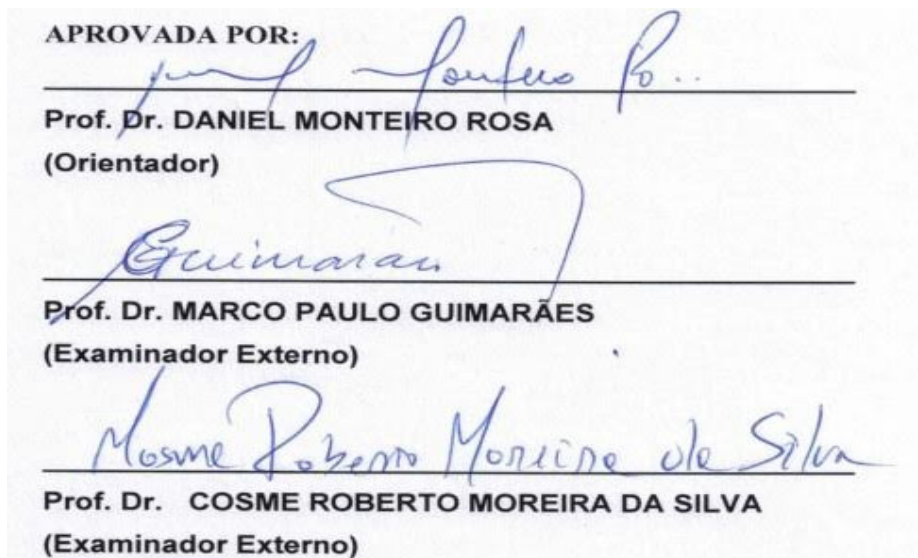 APROVADA POR:
Monteiro Ro..
Prof. Dr. DANIEL MONTEIRO ROSA
(Orientador)
Guimarães
Prof. Dr. MARCO PAULO GUIMARÃES
(Examinador Externo)
Cosme Roberto Moreira da Silva
Prof. Dr. COSME ROBERTO MOREIRA DA SILVA
(Examinador Externo)